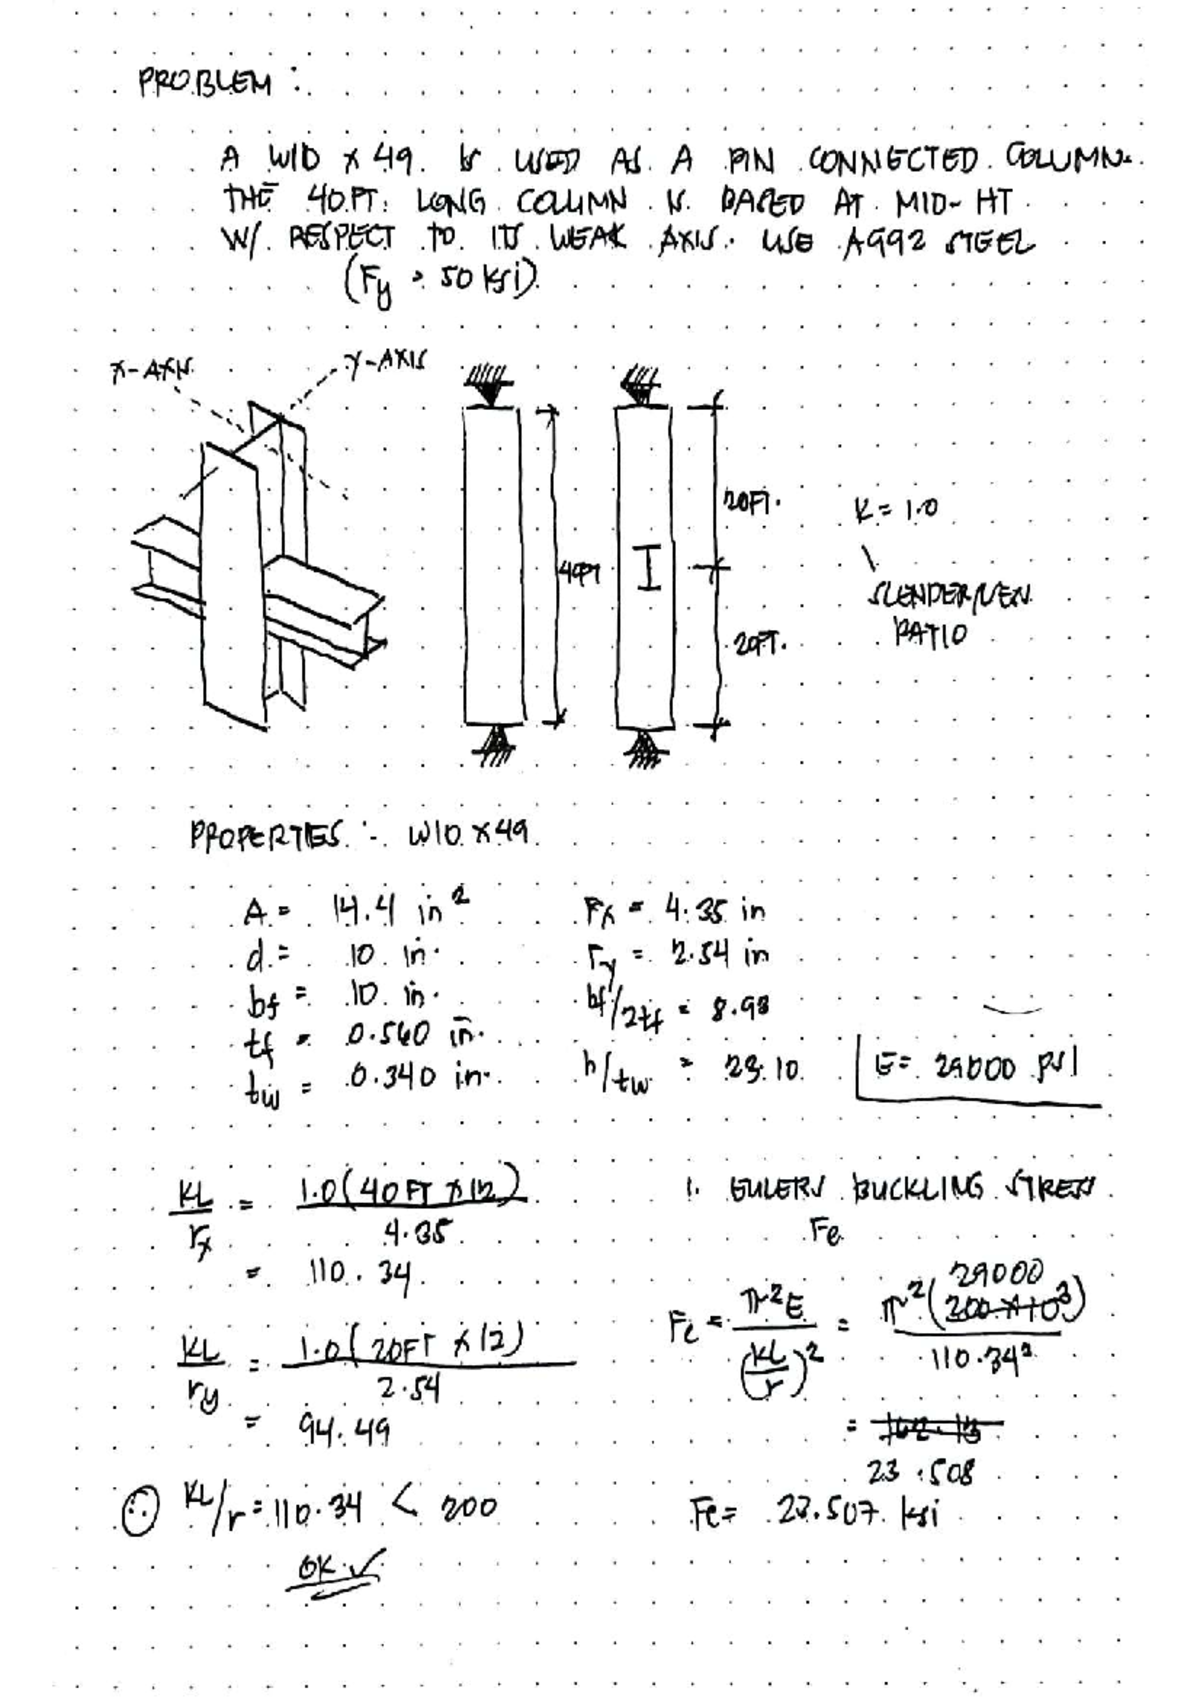 PROBLEM :
A W10 x 49 IS USED AS A PIN CONNECTED COLUMN.
THE 40FT. LONG COLUMN IS BRACED AT MID-HT
W/ RESPECT TO ITS WEAK AXIS. USE A992 STEEL
(Fy = 50 ksi)
X-AXIS
Y-AXIS
40FT
20FT.
20FT.
K = 1.0
SLENDERNESS
RATIO
PROPERTIES :- W10 x 49
A = 14.4 in²
d = 10 in.
bf = 10 in.
tf = 0.560 in.
tw = 0.340 in.
rx = 4.35 in
ry = 2.54 in
bf/2tf = 8.93
h/tw = 23.10
E = 29000 psi
KL/rx = 1.0(40FT x 12)/4.35
= 110.34
KL/ry = 1.0(20FT x 12)/2.54
= 94.49
KL/r = 110.34 < 200
OK ✓
1. EULERS BUCKLING STRESS
Fe
29000
Fe = π²E/(KL/r)² = π²(200x10³)/110.34²
= 162.13
23.508
Fe = 23.507 ksi